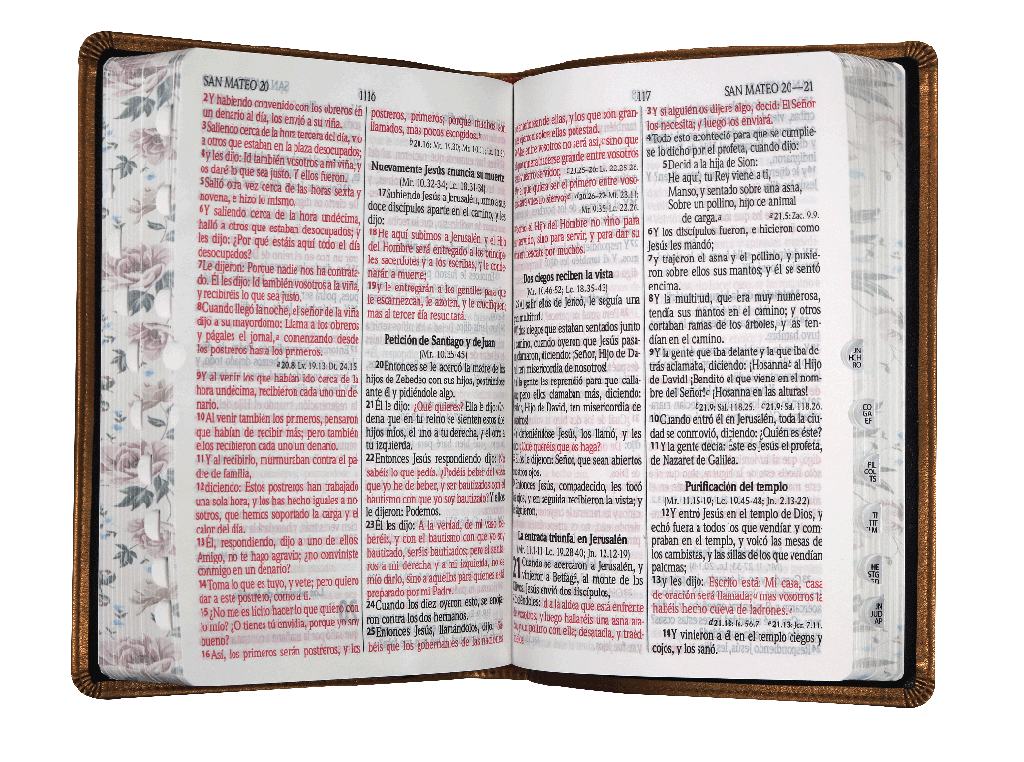 SAN MATEO 20
1116
2Y habiendo convenido con los obreros en
un denario al día, los envió a su viña.
3Saliendo cerca de la hora tercera del día, vio
a otros que estaban en la plaza desocupados;
4y les dijo: Id también vosotros a mi viña, y
os daré lo que sea justo. Y ellos fueron.
5Salió otra vez cerca de las horas sexta y
novena, e hizo lo mismo.
6Y saliendo cerca de la hora undécima,
halló a otros que estaban desocupados; y
les dijo: ¿Por qué estáis aquí todo el día
desocupados?
7Le dijeron: Porque nadie nos ha contrata-
do. Él les dijo: Id también vosotros a la viña,
y recibiréis lo que sea justo.
8Cuando llegó la noche, el señor de la viña
dijo a su mayordomo: Llama a los obreros
y págales el jornal,a comenzando desde
los postreros hasta los primeros.
a20.8 Lv. 19.13 Dt. 24.15
9Y al venir los que habían ido cerca de la
hora undécima, recibieron cada uno un de-
nario.
10Al venir también los primeros, pensaron
que habían de recibir más; pero también
ellos recibieron cada uno un denario.
11Y al recibirlo, murmuraban contra el pa-
dre de familia,
12diciendo: Estos postreros han trabajado
una sola hora, y los has hecho iguales a no-
sotros, que hemos soportado la carga y el
calor del día.
13Él, respondiendo, dijo a uno de ellos:
Amigo, no te hago agravio; ¿no conviniste
conmigo en un denario?
14Toma lo que es tuyo, y vete; pero quiero
dar a este postrero, como a ti.
15¿No me es lícito hacer lo que quiero con
lo mío? ¿O tienes tú envidia, porque yo soy
bueno?
16Así, los primeros serán postreros, y los
postreros, primeros; porque muchos son
llamados, mas pocos escogidos.b
Nuevamente Jesús anuncia su muerte
(Mr. 10.32-34; Lc. 18.31-34)
17Subiendo Jesús a Jerusalén, tomó a sus
doce discípulos aparte en el camino, y les
dijo:
18He aquí subimos a Jerusalén, y el Hijo
del Hombre será entregado a los principes
les sacerdotes y a los escribas, y le conde-
narán a muerte;
19y le entregarán a los gentiles para que
le escarnezcan, le azoten, y le crucifiquen;
mas al tercer día resucitará.
Petición de Santiago y de Juan
(Mr. 10.35-45)
20Entonces se le acercó la madre de los
hijos de Zebedeo con sus hijos, postrándose
ante él y pidiéndole algo.
21Él le dijo: ¿Qué quieres? Ella le dijo: Or-
dena que en tu reino se sienten estos dos
hijos míos, el uno a tu derecha, y el otro a
tu izquierda.
22Entonces Jesús respondiendo dijo: No
sabéis lo que pedís. ¿Podéis beber del vaso
que yo he de beber, y ser bautizados con el
bautismo con que yo soy bautizado? Y ellos
le dijeron: Podemos.
23Él les dijo: A la verdad, de mi vaso be-
beréis, y con el bautismo con que yo soy
bautizado, seréis bautizados; pero el senta-
ros a mi derecha y a mi izquierda, no es
mío darlo, sino a aquellos para quienes está
preparado por mi Padre.
24Cuando los diez oyeron esto, se enoja-
ron contra los dos hermanos.
25Entonces Jesús, llamándolos, dijo: Sa-
béis que los gobernantes de las naciones
117
SAN MATEO 20—21
de ellas, y los que son gran-
ellas potestad.
entre vosotros no será así, sino que
hacerse grande entre vosotros
c21.25-26: Lc. 22.25-26.
que quiera ser el primero entre voso-
Mr. 9.35; Lc. 22.26.
el Hijo del Hombre no vino para
servido, sino para servir, y para dar su
rescate por muchos.
Dos ciegos reciben la vista
(Mr. 10.46-52; Lc. 18.35-43)
salir ellos de Jericó, le seguía una
multitud.
dos ciegos que estaban sentados junto
camino, cuando oyeron que Jesús pasa-
clamaron, diciendo: Señor, Hijo de Da-
misericordia de nosotros!
la gente les reprendió para que calla-
pero ellos clamaban más, diciendo:
Hijo de David, ten misericordia de
deteniéndose Jesús, los llamó, y les
¿Qué queréis que os haga?
le dijeron: Señor, que sean abiertos
ojos.
Entonces Jesús, compadecido, les tocó
ojos, y en seguida recibieron la vista; y
siguieron.
La entrada triunfal en Jerusalén
(Mr. 11.1-11 Lc. 19.28-40; Jn. 12.12-19)
21 Cuando se acercaron a Jerusalén, y
vinieron a Betfagé, al monte de los
Jesús envió dos discípulos,
Id a la aldea que está enfrente
vosotros, y luego hallaréis una asna ata-
un pollino con ella; desatadla, y traéd-
3Y si alguien os dijere algo, decid: El Señor
los necesita; y luego los enviará.
4Todo esto aconteció para que se cumplie-
se lo dicho por el profeta, cuando dijo:
5Decid a la hija de Sion:
He aquí, tu Rey viene a ti,
Manso, y sentado sobre una asna,
Sobre un pollino, hijo de animal
de carga.a
a21.5: Zac. 9.9.
6Y los discípulos fueron, e hicieron como
Jesús les mandó;
7y trajeron el asna y el pollino, y pusie-
ron sobre ellos sus mantos; y él se sentó
encima.
8Y la multitud, que era muy numerosa,
tendía sus mantos en el camino; y otros
cortaban ramas de los árboles, y las ten-
dían en el camino.
9Y la gente que iba delante y la que iba de-
trás aclamaba, diciendo: ¡Hosanna al Hijo
de David! ¡Bendito el que viene en el nom-
bre del Señor! ¡Hosanna en las alturas!
b21.9: Sal. 118.25. c21.9: Sal. 118.26.
10Cuando entró él en Jerusalén, toda la ciu-
dad se conmovió, diciendo: ¿Quién es éste?
11Y la gente decía: Este es Jesús el profeta,
de Nazaret de Galilea.
Purificación del templo
(Mr. 11.15-19; Lc. 19.45-48; Jn. 2.13-22)
12Y entró Jesús en el templo de Dios, y
echó fuera a todos los que vendían y com-
praban en el templo, y volcó las mesas de
los cambistas, y las sillas de los que vendían
palomas;
13y les dijo: Escrito está: Mi casa, casa
de oración será llamada; mas vosotros la
habéis hecho cueva de ladrones.
d21.13: Is. 56.7 e21.13: Jer. 7.11.
14Y vinieron a él en el templo ciegos y
cojos, y los sanó.
CO
GA
EF
FIL
COL
TS
TI
TIT
HE
STG
JN
JUD
AP